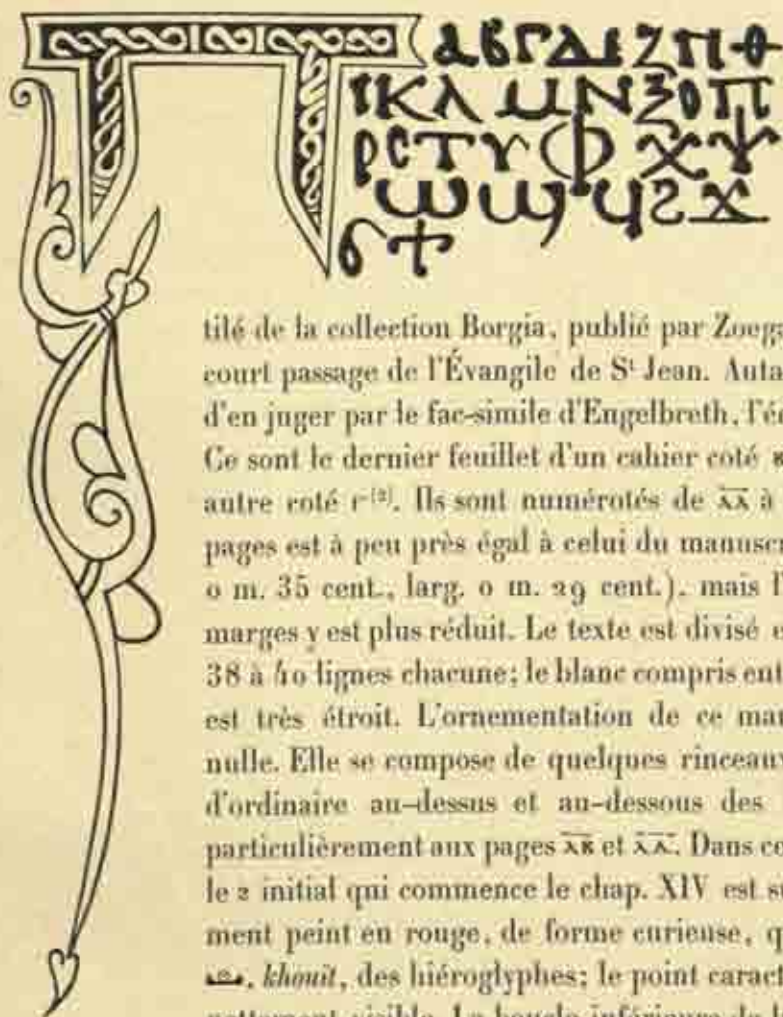 Ⲡ ⲁⲃⲅⲇⲉⲍⲏⲑ
ⲓⲕⲗ ⲙⲛⲝⲟⲡ
ⲣⲥⲧⲩⲫ ⲭⲯ
ⲱϣϥϩϫ
ϭϯ
tilé de la collection Borgia, publié par Zoega
court passage de l'Évangile de Sᵗ Jean. Auta
d'en juger par le fac-simile d'Engelbreth, l'é
Ce sont le dernier feuillet d'un cahier coté ⲃ
autre coté ⲅ⁽²⁾. Ils sont numérotés de ⲗⲁ à
pages est à peu près égal à celui du manusc
0 m. 35 cent., larg. 0 m. 29 cent.), mais l'
marges y est plus réduit. Le texte est divisé e
38 à 40 lignes chacune; le blanc compris ent
est très étroit. L'ornementation de ce ma
nulle. Elle se compose de quelques rinceau
d'ordinaire au-dessus et au-dessous des
particulièrement aux pages ⲗⲃ et Dans c
le ϩ initial qui commence le chap. XIV est s
ment peint en rouge, de forme curieuse, q
khouit, des hiéroglyphes; le point caract
nettement visible. La boucle inférieure de